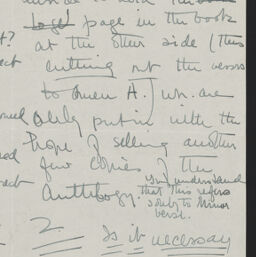 page in the book
at the other side (thus
cutting out the verses
to Queen A.) wh. are
only put in with the
hope of selling another
few copies of the
Anthology.
you understand
that this refers
solely to minor
verse.
2. Is it necessary